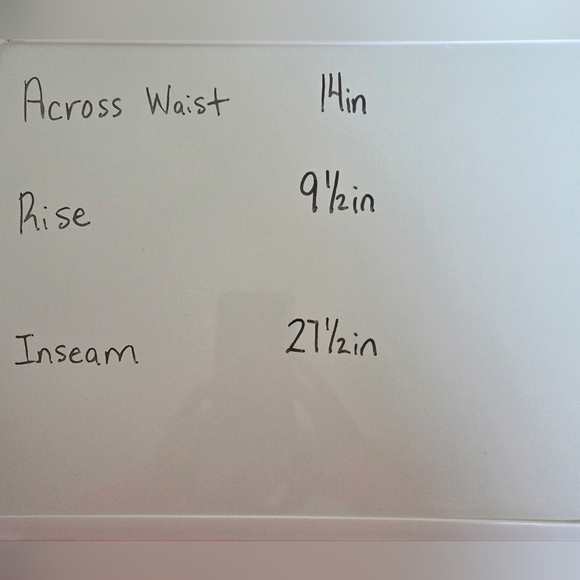 Across Waist 14in
Rise 9½in
Inseam 27½in